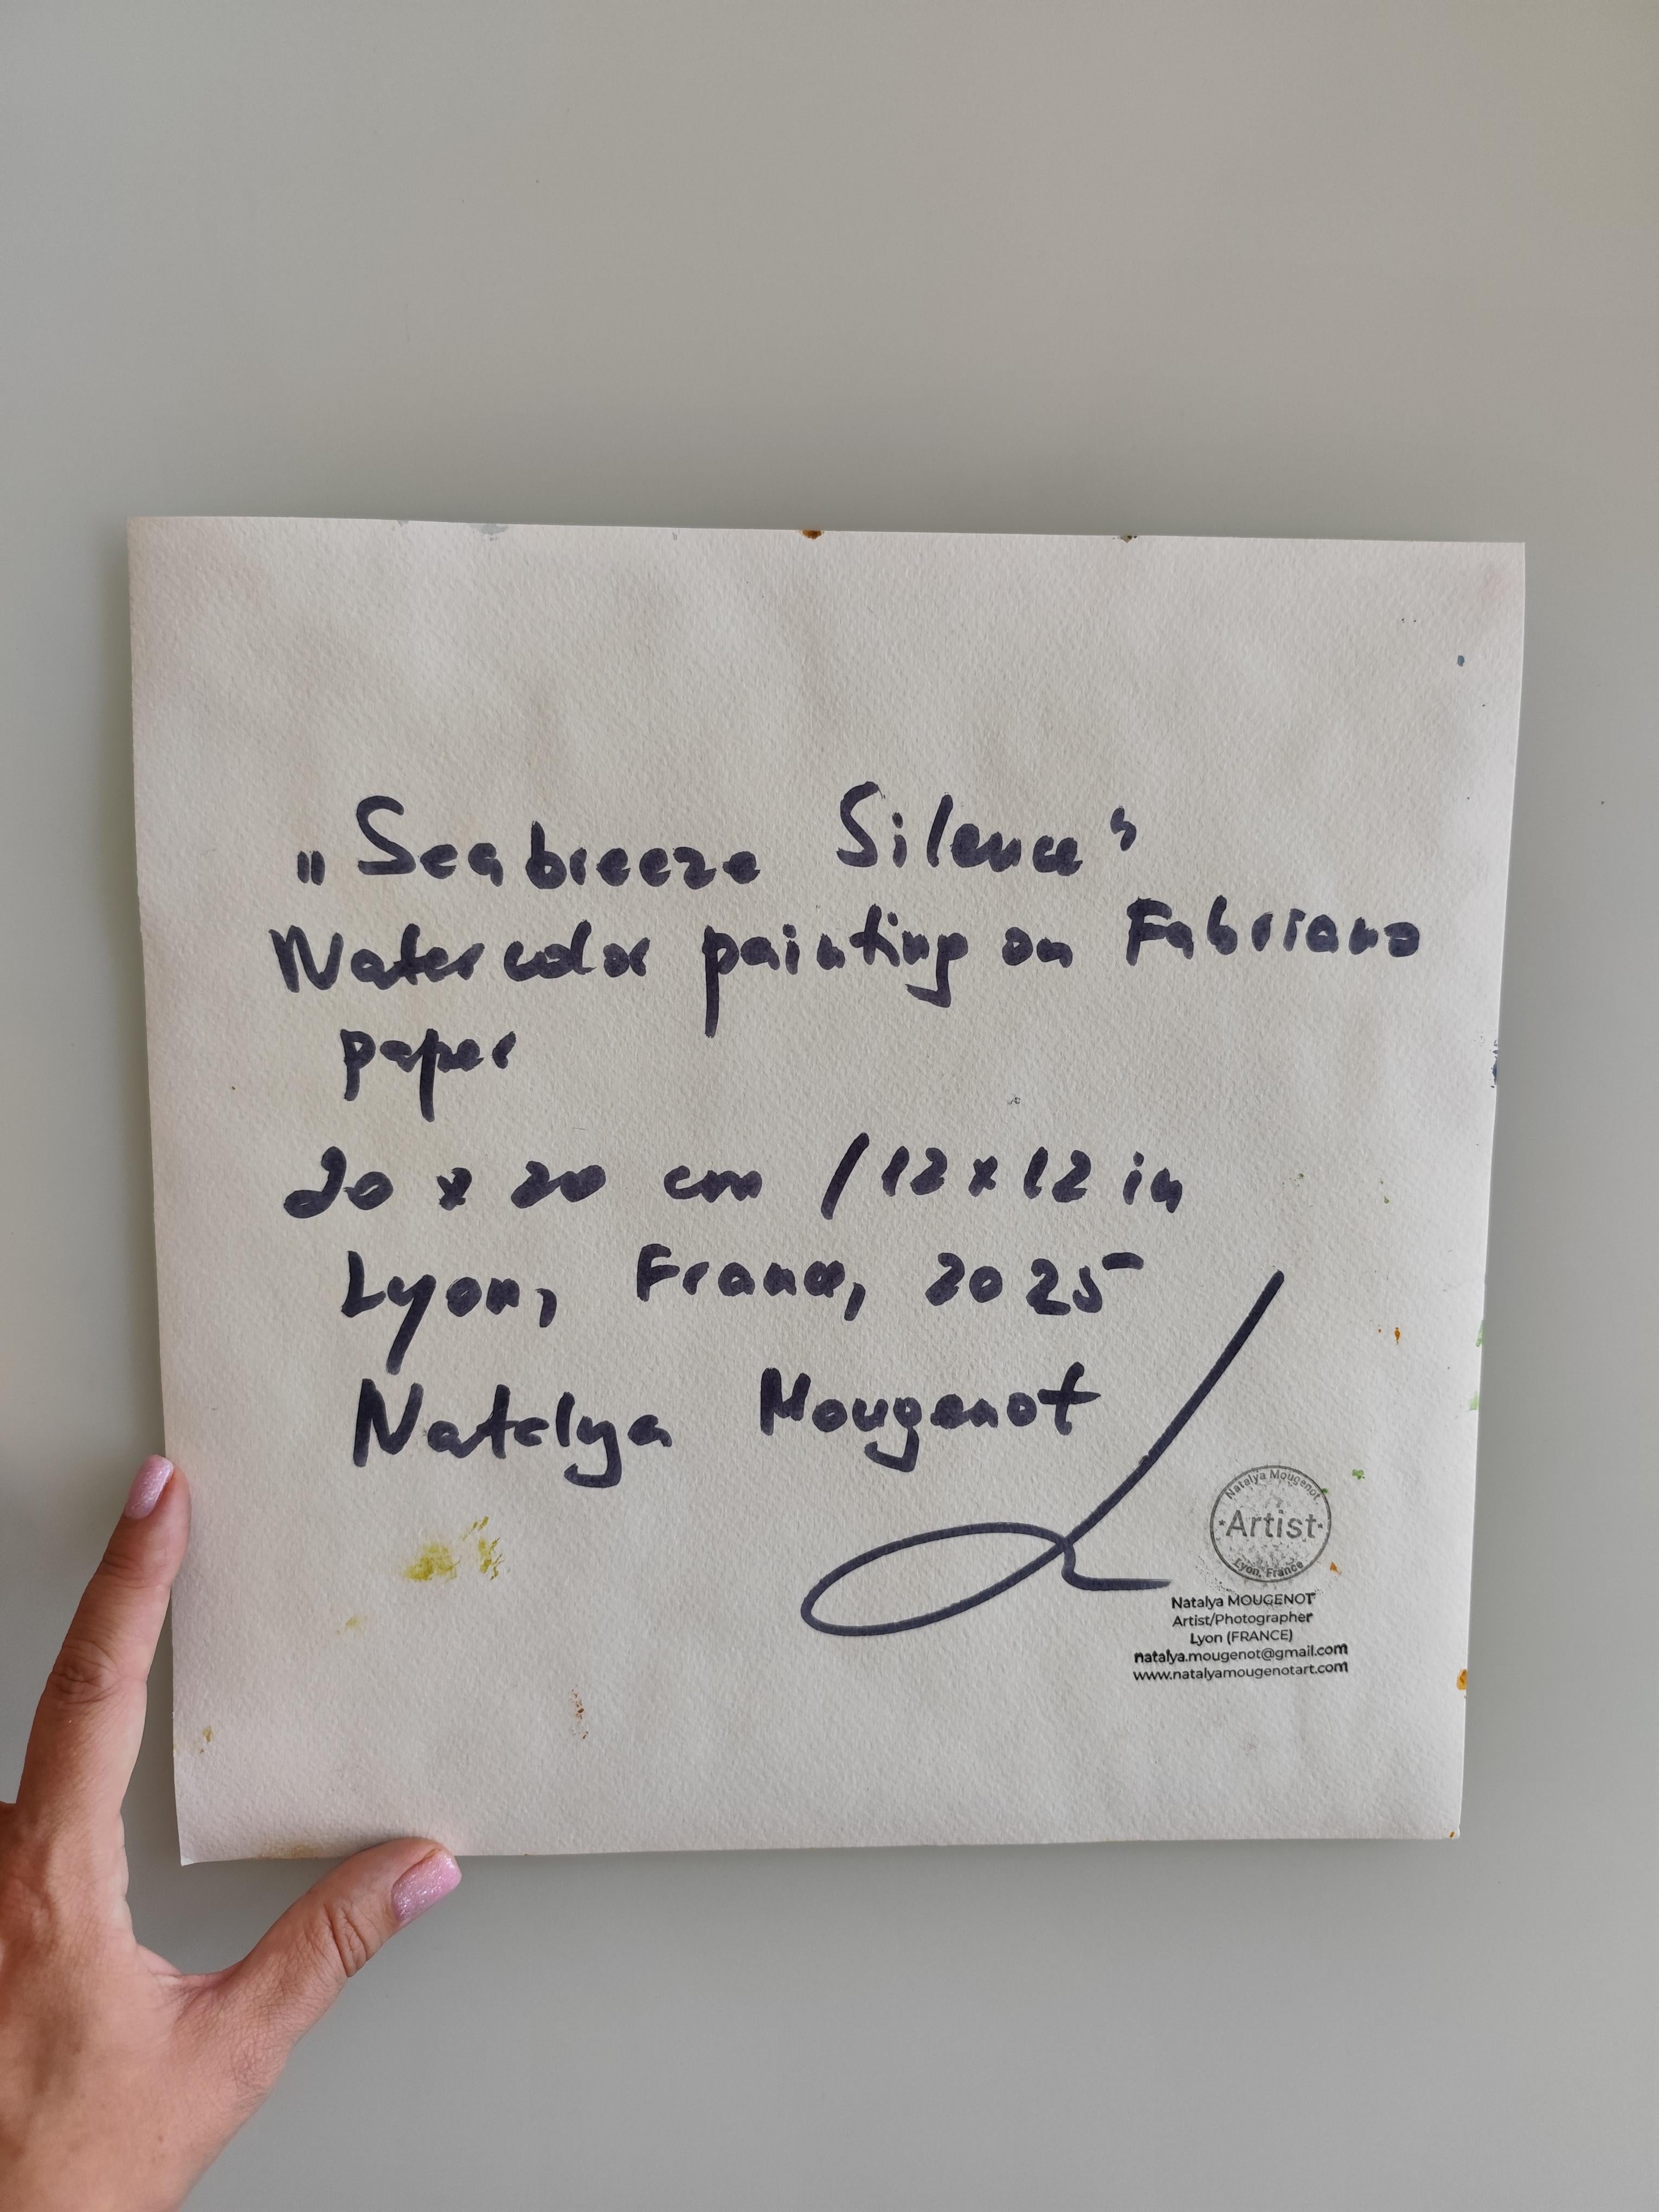 „Seabreeze Silence“
Watercolor painting on Fabriano
paper
20 x 20 cm / 12 x 12 in
Lyon, France, 2025
Natalya Mougenot
Natalya Mougenot
Artist
Lyon, France
Natalya MOUGENOT
Artist/Photographer
Lyon (FRANCE)
natalya.mougenot@gmail.com
www.natalyamougenotart.com